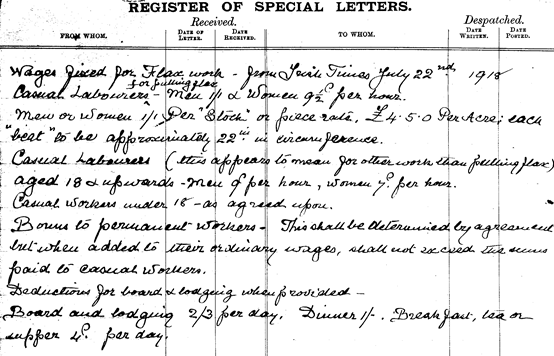 REGISTER OF SPECIAL LETTERS.
Received. Despatched.
FROM WHOM. DATE OF LETTER. DATE RECEIVED. TO WHOM. DATE WRITTEN. DATE POSTED.
Wages fixed for Flax work - from Irish Times July 22nd 1918
for pulling flax
Casual Labourers - Men 1/1 & Women 9½d per hour.
Men or Women 1/1 Per "Stock" or piece rate, £4.5.0 Per Acre; each
"beet" to be approximately 22 ins in circumference.
Casual Labourers (this appears to mean for other work than pulling flax)
aged 18 & upwards - Men 9d per hour, women 7d. per hour.
Casual workers under 18 - as agreed upon.
Bonus to permanent workers - This shall be determined by agreement
but when added to their ordinary wages, shall not exceed the sums
paid to casual workers.
Deductions for board & lodging when provided -
Board and lodging 2/3 per day. Dinner 1/-. Breakfast, tea or
supper 4d. per day.